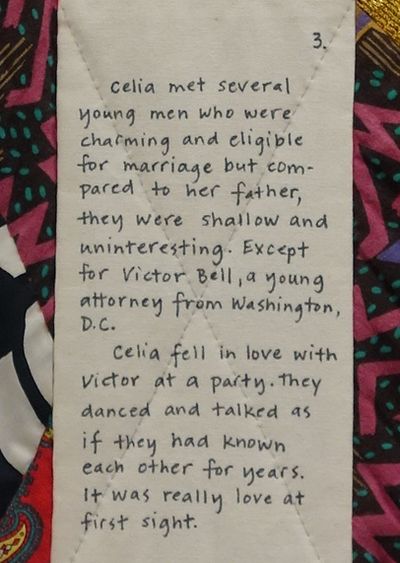 3.
Celia met several
young men who were
charming and eligible
for marriage but com-
pared to her father,
they were shallow and
uninteresting. Except
for Victor Bell, a young
attorney from Washington,
D.C.
Celia fell in love with
Victor at a party. They
danced and talked as
if they had known
each other for years.
It was really love at
first sight.